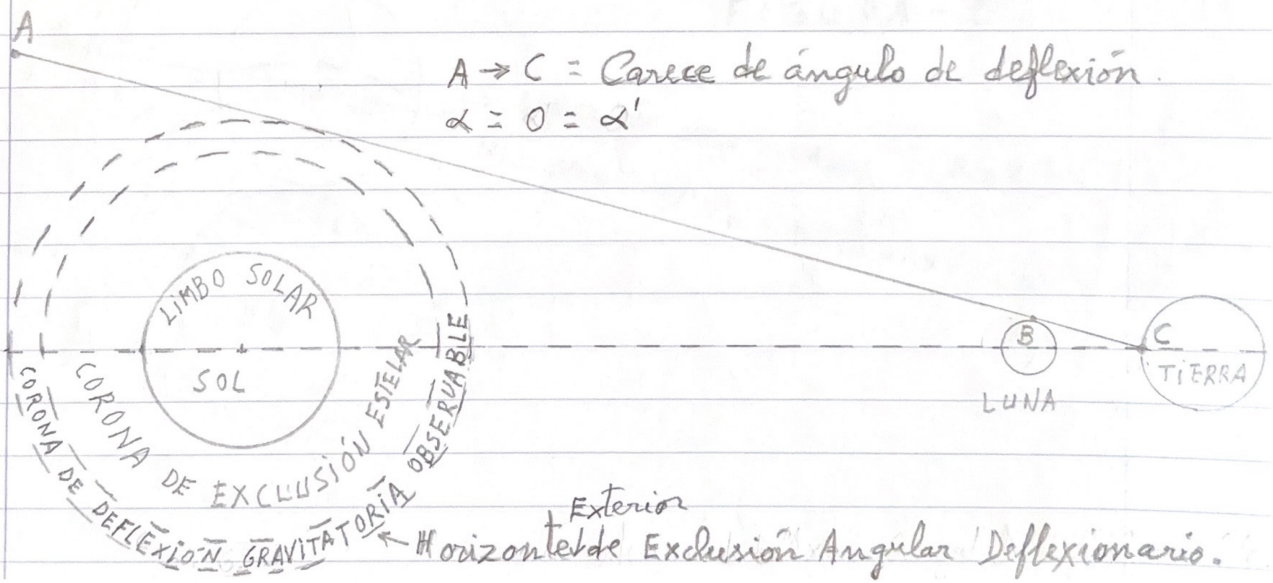 A
A → C = Carece de ángulo de deflexión.
α = 0 = α'
LIMBO SOLAR
SOL
B
C
TIERRA
LUNA
CORONA DE EXCLUSIÓN ESTELAR
CORONA DE DEFLEXIÓN GRAVITATORIA OBSERVABLE
Exterior
← Horizonte de Exclusión Angular Deflexionario.